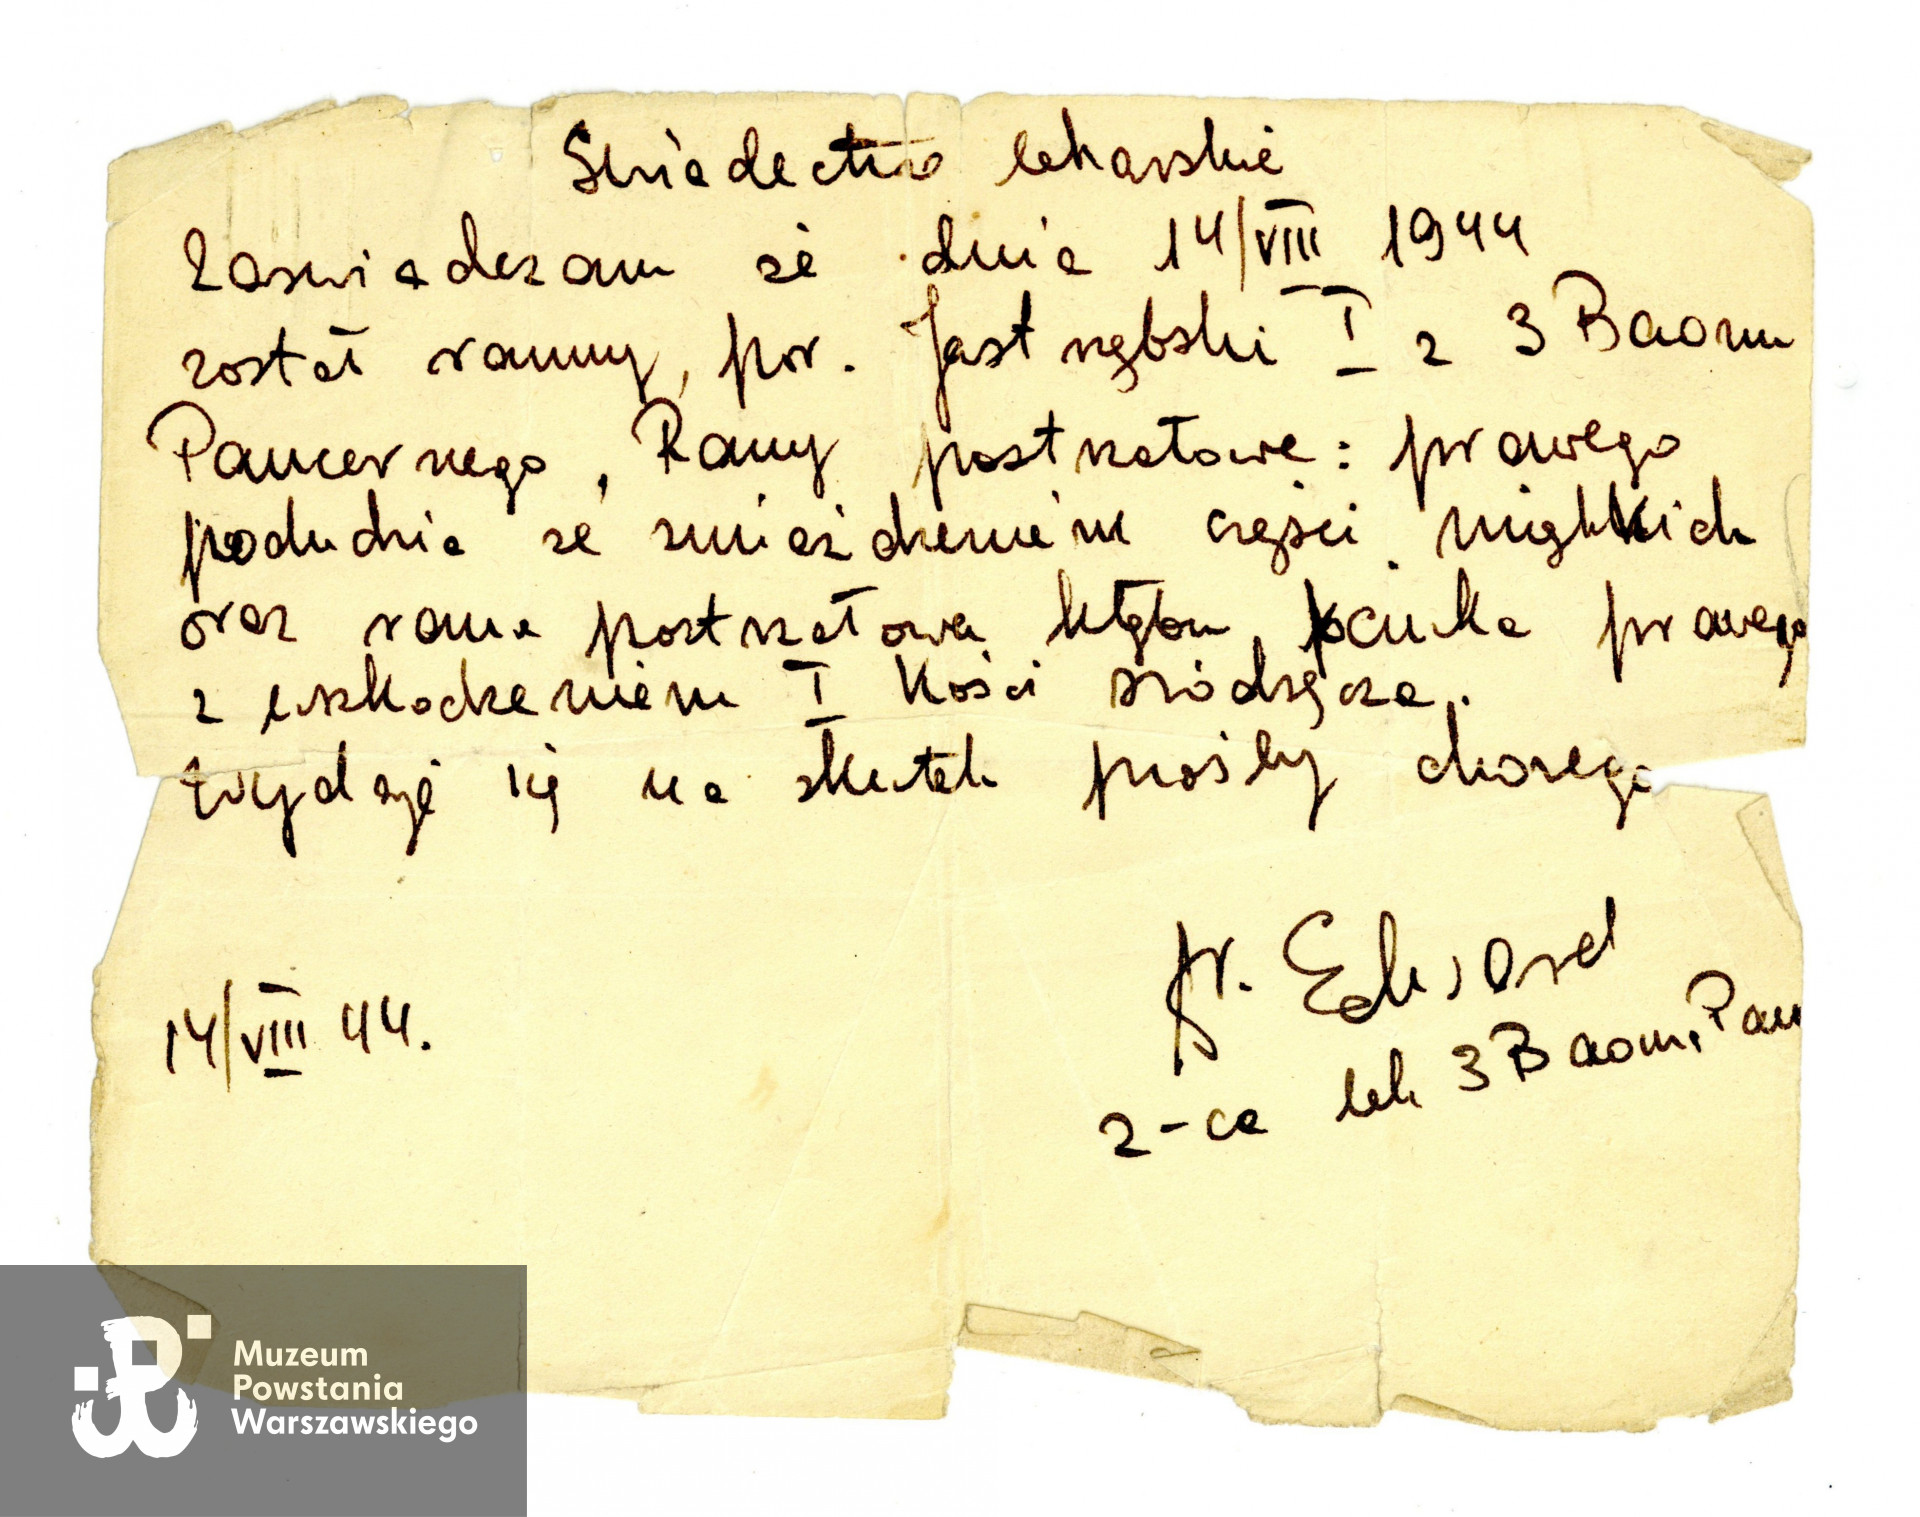 Świadectwo lekarskie
Zaswiadczam że dnia 14/VIII 1944
został ranny, por. Jastrzębski I z 3 Baonu
Pancernego, Rany postrzałowe: prawego
podudzia ze zmiażdzeniem części miękkich
oraz rana postrzałowa kłębu kciuka prawego
z uszkodzeniem I kości sródręcza.
Wydaję się na skutek prośby chorego
14/VIII 44.
Edward
z-ca lek 3 Baonu Pan
Muzeum
Powstania
Warszawskiego